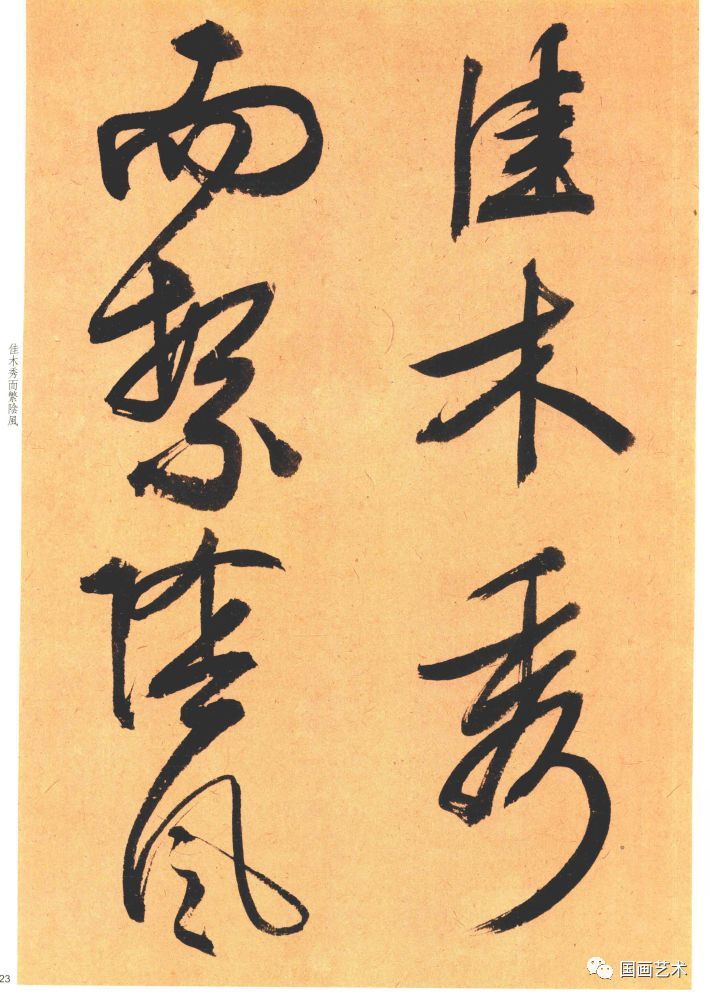 佳木秀
而繁陰風
佳木秀而繁陰風
23
国画艺术